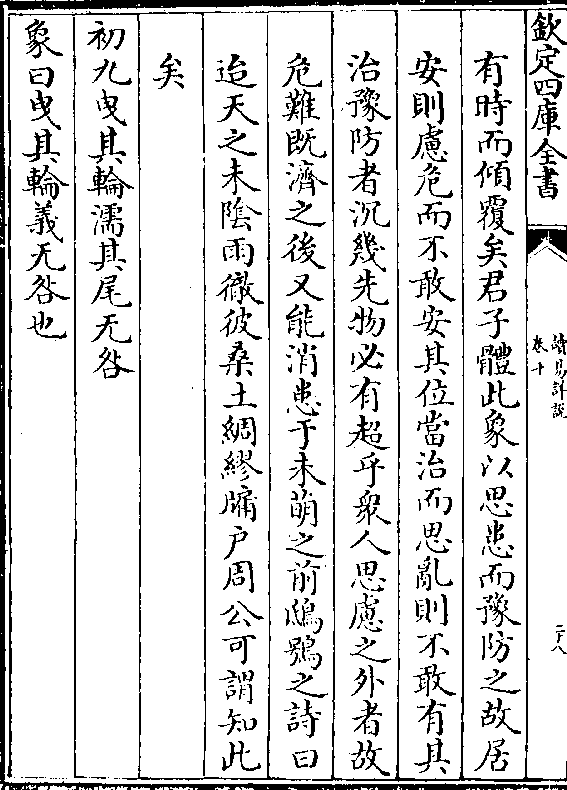 欽定四庫全書
讀易詳說
卷十
二十八
有時而傾覆矣君子體此象以思患而豫防之故居
安則慮危而不敢安其位當治而思亂則不敢有其
治豫防者沉幾先物必有超乎衆人思慮之外者故
危難既濟之後又能消患于未萌之前鴟鴞之詩曰
迨天之未陰雨徹彼桑土綢繆牖户周公可謂知此
矣
初九曳其輪濡其尾无咎
象曰曳其輪義无咎也